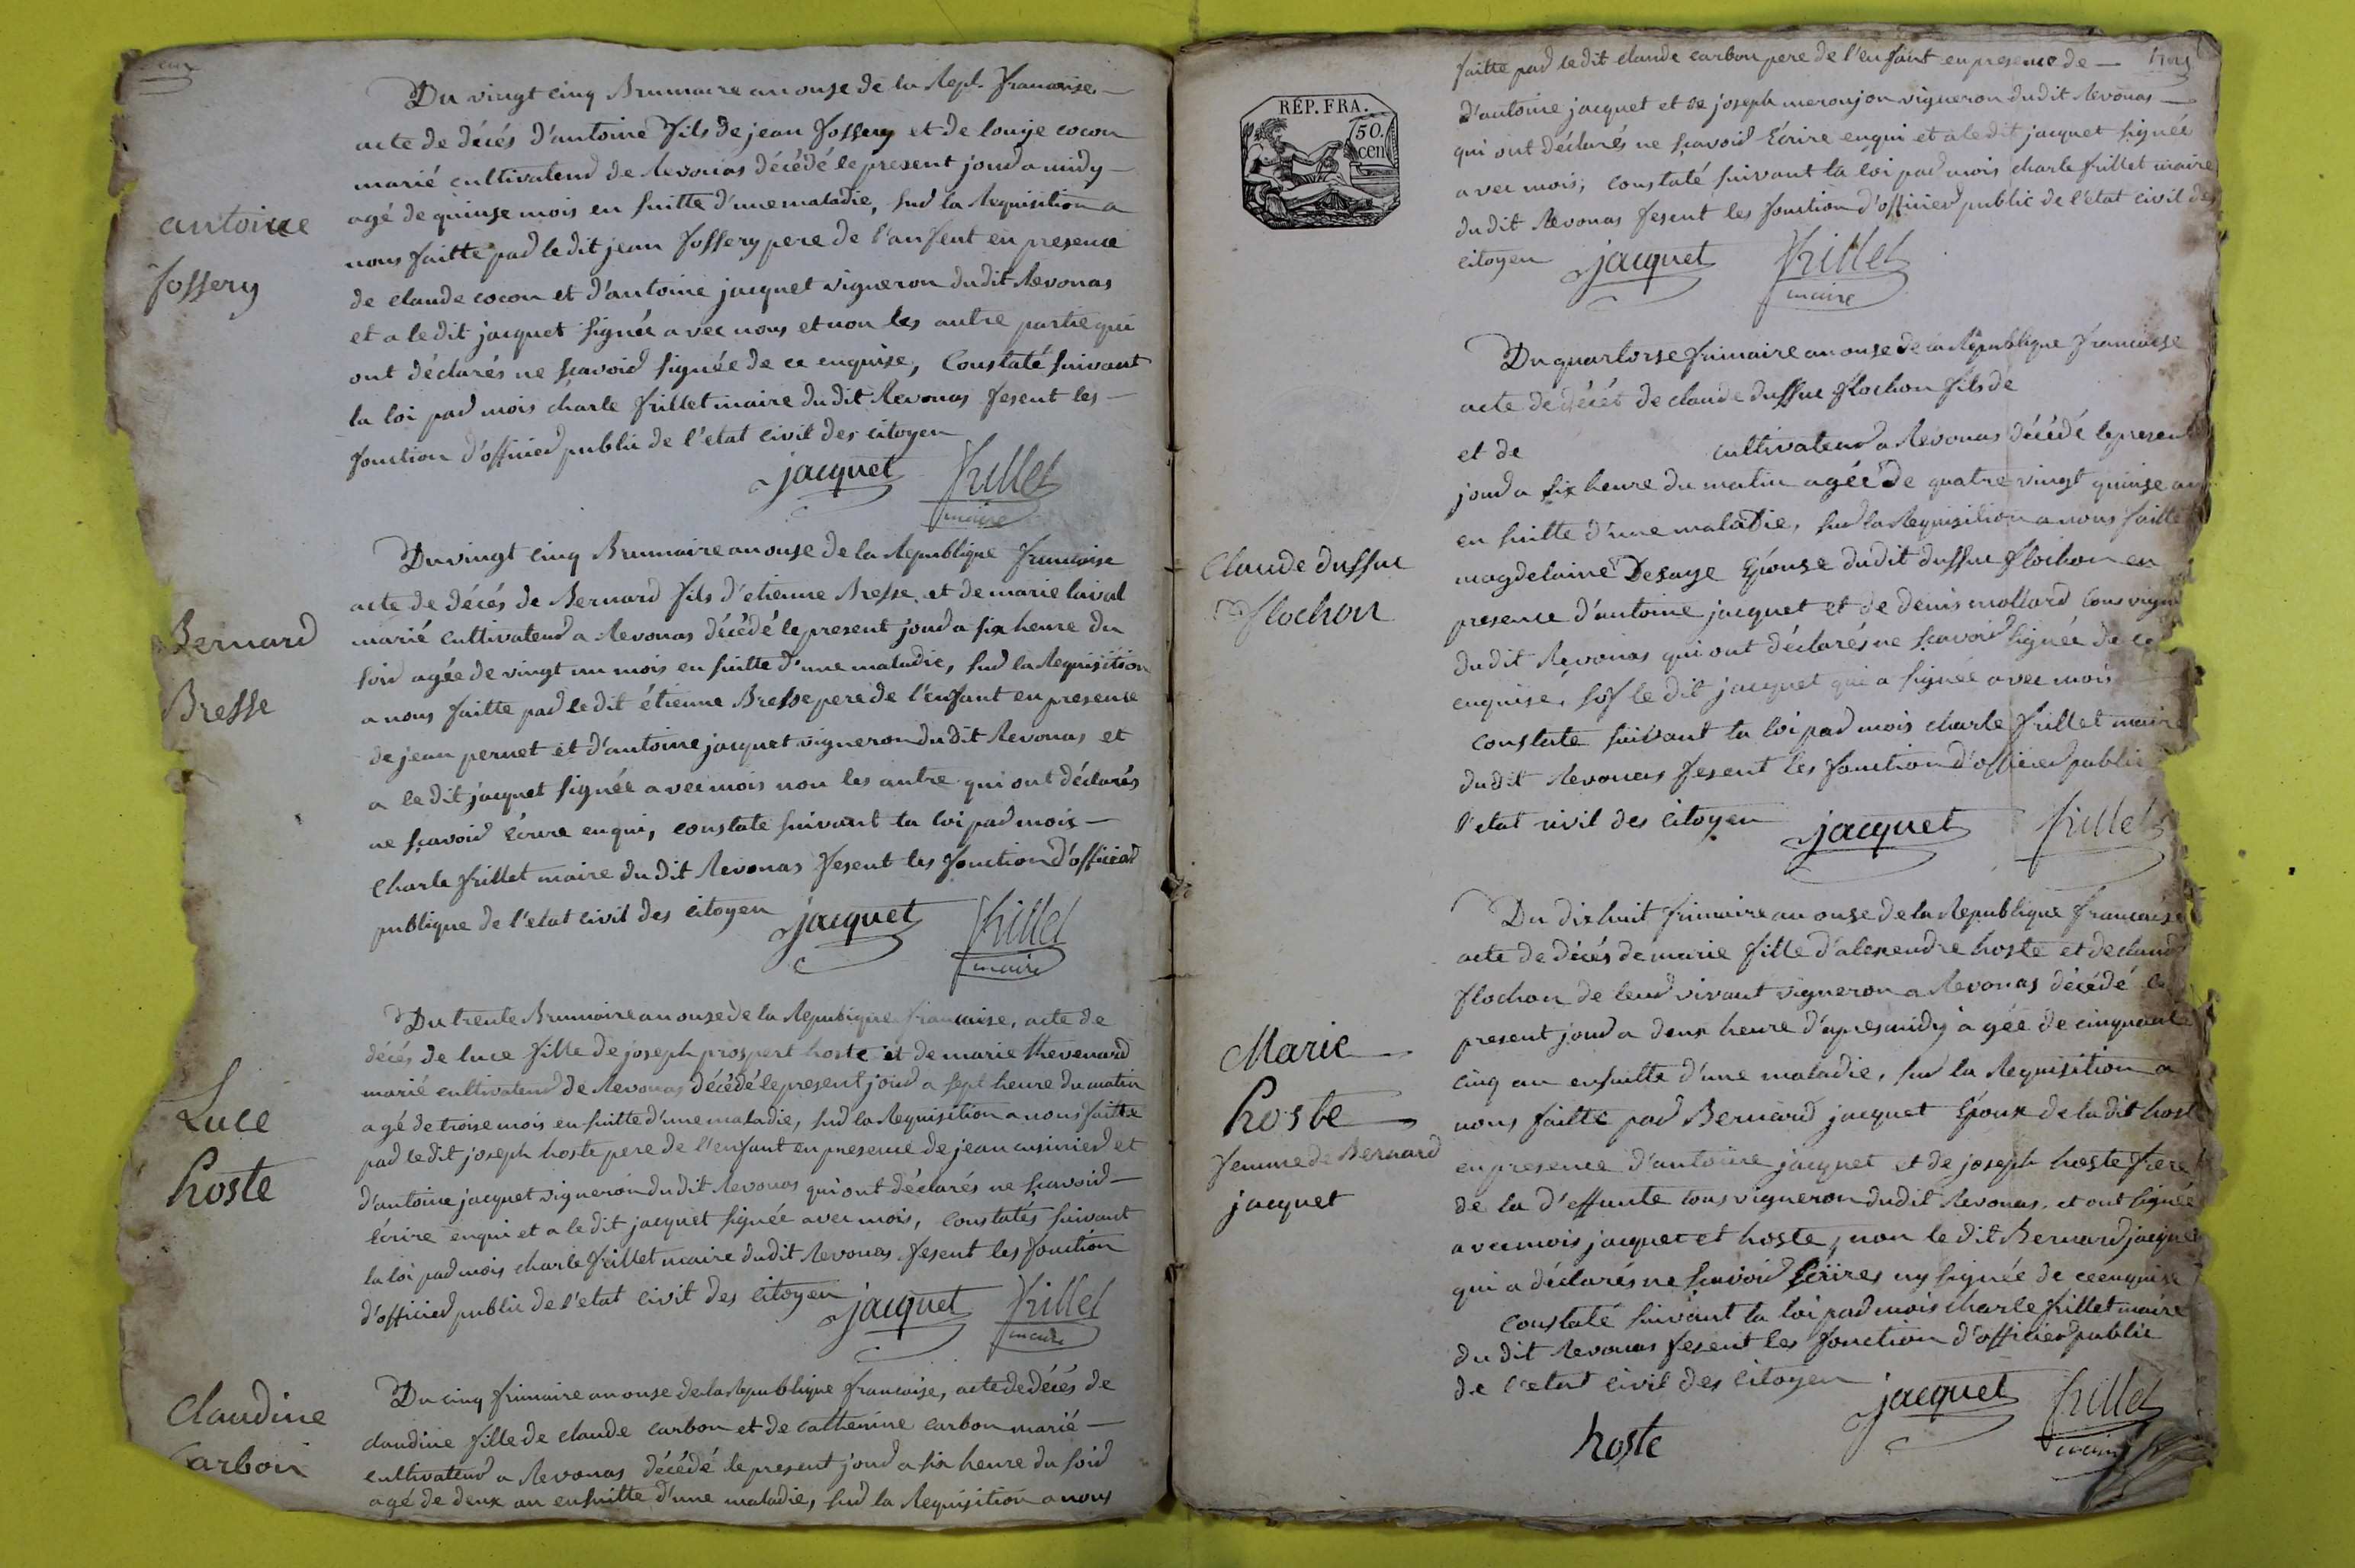 Du vingt cinq Brumaire an onze de la Repl. francaise
acte de décés d'antoine fils de jean fossery et de louije cocon
marié cultivateur de Revonas décédé le present jour a midy
antoine
fossery
agé de quinse mois en suitte d'une maladie, sur la Requisition a
nous faitte par le dit jean fossery pere de l'anfent en presence
de claude cocon et d'antoine jacquet vigneron dudit Revonas
et a le dit jacquet signée avec nous et non les autre partie qui
ont déclarés ne sçavoir signée de ce enquise, Constaté suivant
la loi par mois charle frillet maire du dit Revonas fesent les
fonction d'officier public de l'etat civil des citoyen
jacquet frillet
maire
Du vingt cinq Brumaire an onse de la Republique francaise
acte de décés de Bernard fils d'etienne Bresse et de marie laival
Bernard
Bresse
marié cultivateur a Revonas décédé le present jour a six heure du
soir agée de vingt un mois en suitte d'une maladie, sur la Requisition
a nous faitte par le dit étienne Bresse pere de l'enfant en presense
de jean pernet et d'antoine jacquet vigneron du dit Revonas et
a le dit jacquet signée avec mois non les autre qui ont déclarés
ne sçavoir écrire enqui, constate suivant la loi par mois
Charle frillet maire du dit Revonas fesent les fonction d'officier
publique de l'etat civil des citoyen
jacquet frillet
maire
Du trente Brumaire an onze de la Repubique francaise, acte de
décés de luce fille de joseph prospert hoste et de marie thevenard
marié cultivateur de Revonas décédé le present jour a sept heure du matin
Luce
hoste
agé de troise mois en suitte d'une maladie, sur la Requisition a nous faitte
par le dit joseph hoste pere de l'enfant en presence de jean cusinier et
d'antoine jacquet vigneron du dit Revonas qui ont déclarés ne sçavoir
écrire enqui et a le dit jacquet signée avec mois, constatés suivant
la loi par mois charle frillet maire dudit Revonas fesent les fonction
d'officier public de l'etat civil des citoyen
jacquet frillet
maire
Claudine
Carbon
Du cinq frimaire an onse de la Republique francaise, acte de décés de
claudine fille de claude carbon et de catherine carbon marié
cultivateur a Revonas décédé le present jour a six heure du soir
agé de deux an en suitte d'une maladie, sur la Requisition a nous
faitte par le dit claude carbon pere de l'enfant en presence de
RÉP. FRA.
50.
cen
d'antoine jacquet et de joseph meronjon vigneron dudit Revonas
qui ont déclarés ne sçavoir écrire enqui et a le dit jacquet signée
avec mois, constaté suivant la loi par mois charle frillet maire
du dit Revonas fesent les fonction d'officier public de l'etat civil des
citoyen jacquet frillet
maire
Du quartorse frimaire an onse de la Republique francaise
acte de décét de claude dussuc flochon fils de
et de cultivateur a Revonas décédé le present
jour a six heure du matin agée de quatre vingt quinse an
en suitte d'une maladie, sur la Requisition a nous faitte
Claude dussuc
flochon
magdelaine Desaye Epouse dudit dussuc flochon en
presence d'antoine jacquet et de denis mollard tous vigne
du dit Revonas qui ont déclarés ne sçavoir signée de ce
enquise, sof le dit jacquet qui a signée avec mois
constate suivant la loi par mois charle frillet maire
du dit Revonas fesent les fonction d'officier public
l'etat civil des citoyen jacquet frillet
Du dixhuit frimaire an onse de la Republique francaise
acte de décés de marie fille d'alexendre hoste et de claud
flochon de leur vivant vigneron a Revonas décédé le
present jour a deux heure d'apres midy agée de cinquante
Marie
hoste
femme de Bernard
jacquet
cinq an en suitte d'une maladie, sur la Requisition a
nous faitte par Bernard jacquet Epoux de la dit host
en presence d'antoine jacquet et de joseph hoste frere
de la d'effunte tous vigneron dudit Revonas, et ont signée
avec mois jacquet et hoste, non le dit Bernard jacque
qui a déclarés ne sçavoir écrires ny signée de ce enquise
Constaté suivant la loi par mois charle frillet maire
du dit Revonas fesent les fonction d'officier public
de l'etat civil des citoyen
jacquet frillet
maire
hoste